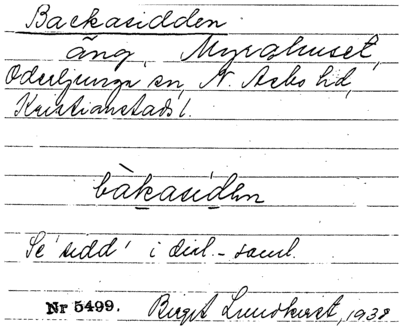 Backasidden
äng, Myrahuset,
Oderljunga sn, N. Åsbo hd,
Kristianstads l.
bàkasíden
Se 'sidd' i dial.-saml.
Nr 5499. Birgit Lundkvist, 1938